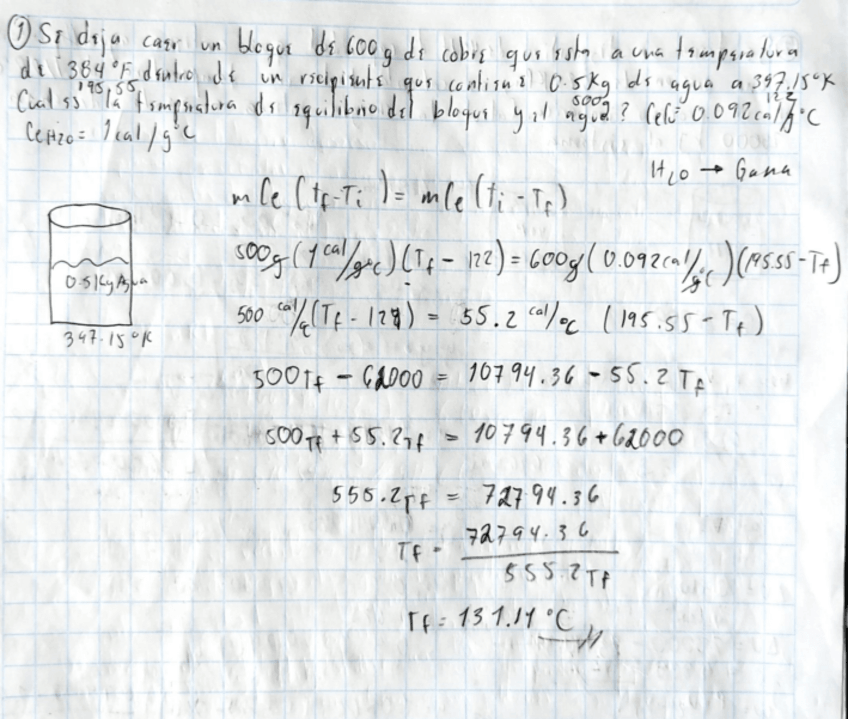 ① Se deja caer un bloque de 600g de cobre que esta a una temperatura
de 384°F dentro de un recipiente que contiene 0.5Kg de agua a 397.15°K
195.55
500g
122
Cual es la temperatura de equilibrio del bloque y el agua? CeCu= 0.092cal/g°C
CeH2O = 1cal/g°C
H2O → Gana
mCe (tf-Ti) = mCe (ti - Tf)
500g (1 cal/g°C) (Tf - 122) = 600g (0.092cal/g°C) (195.55 - Tf)
0.5Kg Agua
500 cal/°C (Tf - 122) = 55.2 cal/°C (195.55 - Tf)
397.15°K
500Tf - 62000 = 10794.36 - 55.2 Tf
500Tf + 55.2Tf = 10794.36 + 62000
555.2Tf = 72794.36
Tf = 72794.36
555.2Tf
Tf = 131.11 °C